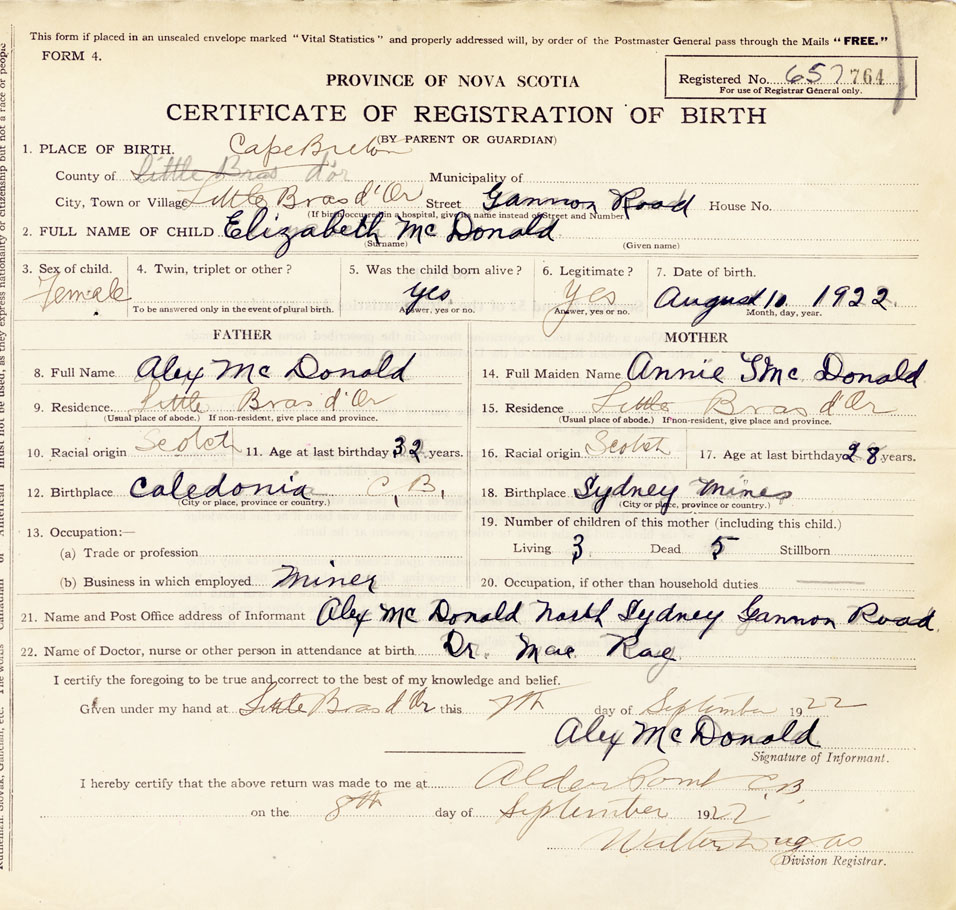 This form if placed in an unsealed envelope marked "Vital Statistics" and properly addressed will, by order of the Postmaster General pass through the Mails "FREE."
FORM 4.
PROVINCE OF NOVA SCOTIA
Registered No. 657 764
For use of Registrar General only.
CERTIFICATE OF REGISTRATION OF BIRTH
(BY PARENT OR GUARDIAN)
1. PLACE OF BIRTH. Cape Breton
County of Little Bras d'or Municipality of
City, Town or Village Little Bras d'Or Street Gannon Road House No.
(If birth occurred in a hospital, give its name instead of Street and Number)
2. FULL NAME OF CHILD Elizabeth Mc Donald
(Surname) (Given name)
3. Sex of child. 4. Twin, triplet or other? 5. Was the child born alive? 6. Legitimate? 7. Date of birth.
Female yes Yes August 10. 1922.
To be answered only in the event of plural birth. Answer, yes or no. Answer, yes or no. Month, day, year.
FATHER MOTHER
8. Full Name Alex Mc Donald 14. Full Maiden Name Annie Mc Donald
9. Residence Little Bras d'Or 15. Residence Little Bras d'Or
(Usual place of abode.) If non-resident, give place and province. (Usual place of abode.) If non-resident, give place and province.
10. Racial origin Scotch 11. Age at last birthday 32 years. 16. Racial origin Scotch 17. Age at last birthday 28 years.
12. Birthplace Caledonia C, B, 18. Birthplace Sydney Mines
(City or place, province or country.) (City or place, province or country.)
13. Occupation:— 19. Number of children of this mother (including this child.)
(a) Trade or profession Living 3 Dead 5 Stillborn
(b) Business in which employed Miner 20. Occupation, if other than household duties
21. Name and Post Office address of Informant Alex Mc Donald North Sydney Gannon Road
22. Name of Doctor, nurse or other person in attendance at birth Dr. Mac Rae
I certify the foregoing to be true and correct to the best of my knowledge and belief.
Given under my hand at Little Bras d'Or this 7th day of September 1922
Alex Mc Donald
Signature of Informant.
I hereby certify that the above return was made to me at Alder Point C.B.
on the 8th day of September 1922
Walter Dugas
Division Registrar.